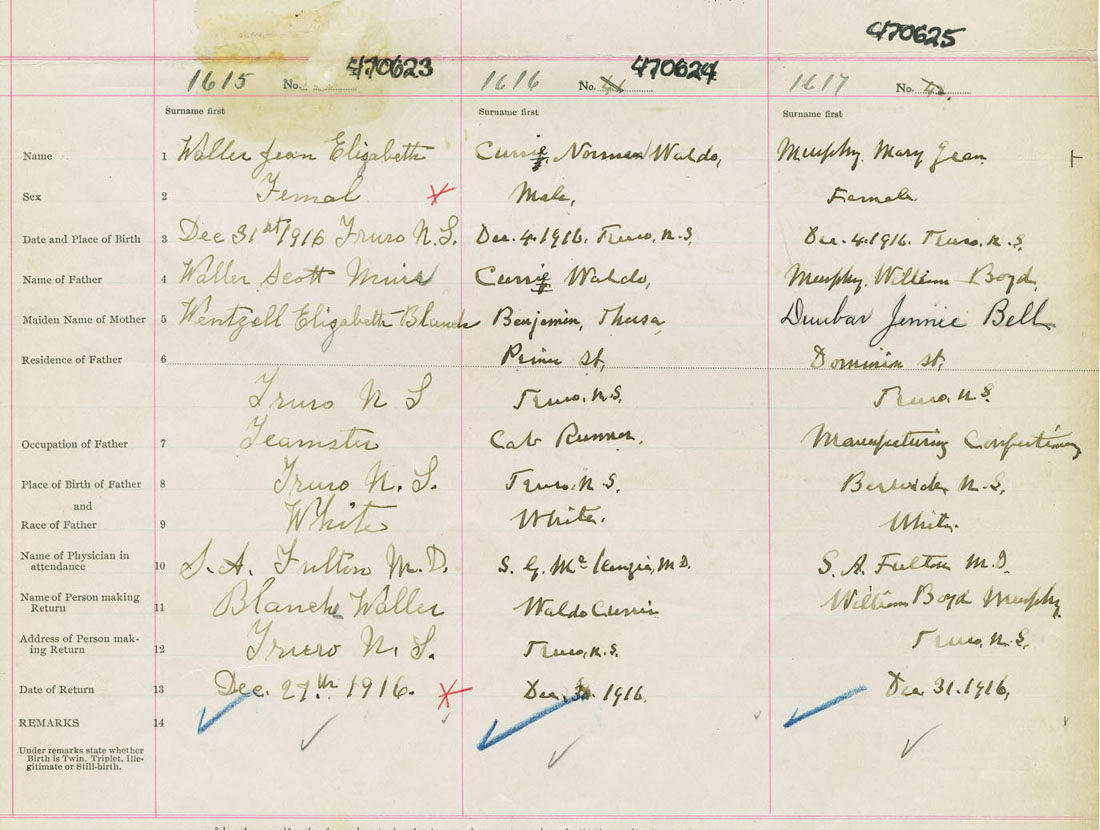 470625
1615 No. 470623 1616 No. 470624 1617 No.
Surname first Surname first Surname first
Name 1 Waller Jean Elizabeth Currie, Norman Waldo, Murphy, Mary Jean
Sex 2 Femal Male, Female.
Date and Place of Birth 3 Dec 31st 1916 Truro N.S. Dec. 4. 1916. Truro, N.S, Dec. 4. 1916. Truro. N.S.
Name of Father 4 Waller Scott Currie Waldo, Murphy, William Boyd,
Maiden Name of Mother 5 Wentzell Elizabeth Blanch Benjamin, Dunbar Jennie Bell
Residence of Father 6 Prince St, Dominion St,
Truro N S Truro. N.S. Truro. N.S.
Occupation of Father 7 Teamster Cab Runner, Manufacturing
Place of Birth of Father 8 Truro N. S. Truro. N.S. N.S,
and
Race of Father 9 White White. White.
Name of Physician in
attendance 10 S. A. Fulton M. D. S. G. McKenzie, M.D. S. A. Fulton M.D.
Name of Person making
Return 11 Blanche Waller Waldo Currie William Boyd Murphy
Address of Person mak-
ing Return 12 Truro N. S. Truro, N.S. Truro, N.S.
Date of Return 13 Dec. 27th 1916. Dec. 1916. Dec. 31. 1916,
REMARKS 14
Under remarks state whether
Birth is Twin, Triplet, Ille-
gitimate or Still-birth.